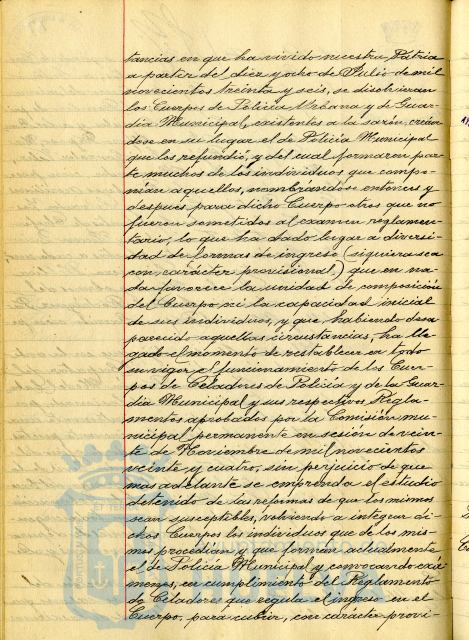 tancias en que ha vivido nuestra Patria
a partir del diez y ocho de Julio de mil
novecientos treinta y seis, se disolvieron
los Cuerpos de Policía Urbana y de Guar-
dia Municipal, existentes a la sazón, creán-
dose en su lugar el de Policía Municipal
que los refundió, y del cual formaron par-
te muchos de los individuos que compo-
nían aquellos, nombrándose entonces y
después para dicho Cuerpo otros que no
fueron sometidos al examen reglamen-
tario, lo que ha dado lugar a diversi-
dad de formas de ingreso (siquiera sea
con carácter provisional) que en na-
da favorece la unidad de composición
del Cuerpo, ni la capacidad inicial
de sus individuos, y que habiendo desa-
parecido aquellas circunstancias, ha lle-
gado el momento de restablecer en todo
su vigor el funcionamiento de los Cuer-
pos de Celadores de Policía y de la Guar-
dia Municipal y sus respectivos Regla-
mentos aprobados por la Comisión mu-
nicipal permanente en sesión de vein-
te de Noviembre de mil novecientos
veinte y cuatro, sin perjuicio de que
mas adelante se emprenda el estudio
detenido de las reformas de que los mismos
sean susceptibles, volviendo a integrar di-
chos Cuerpos los individuos que de los mis-
mos procedían y que forman actualmente
el de Policía Municipal y convocando exá-
menes, en cumplimiento del Reglamento
de Celadores que regula el ingreso en el
Cuerpo, para cubrir, con carácter provi-